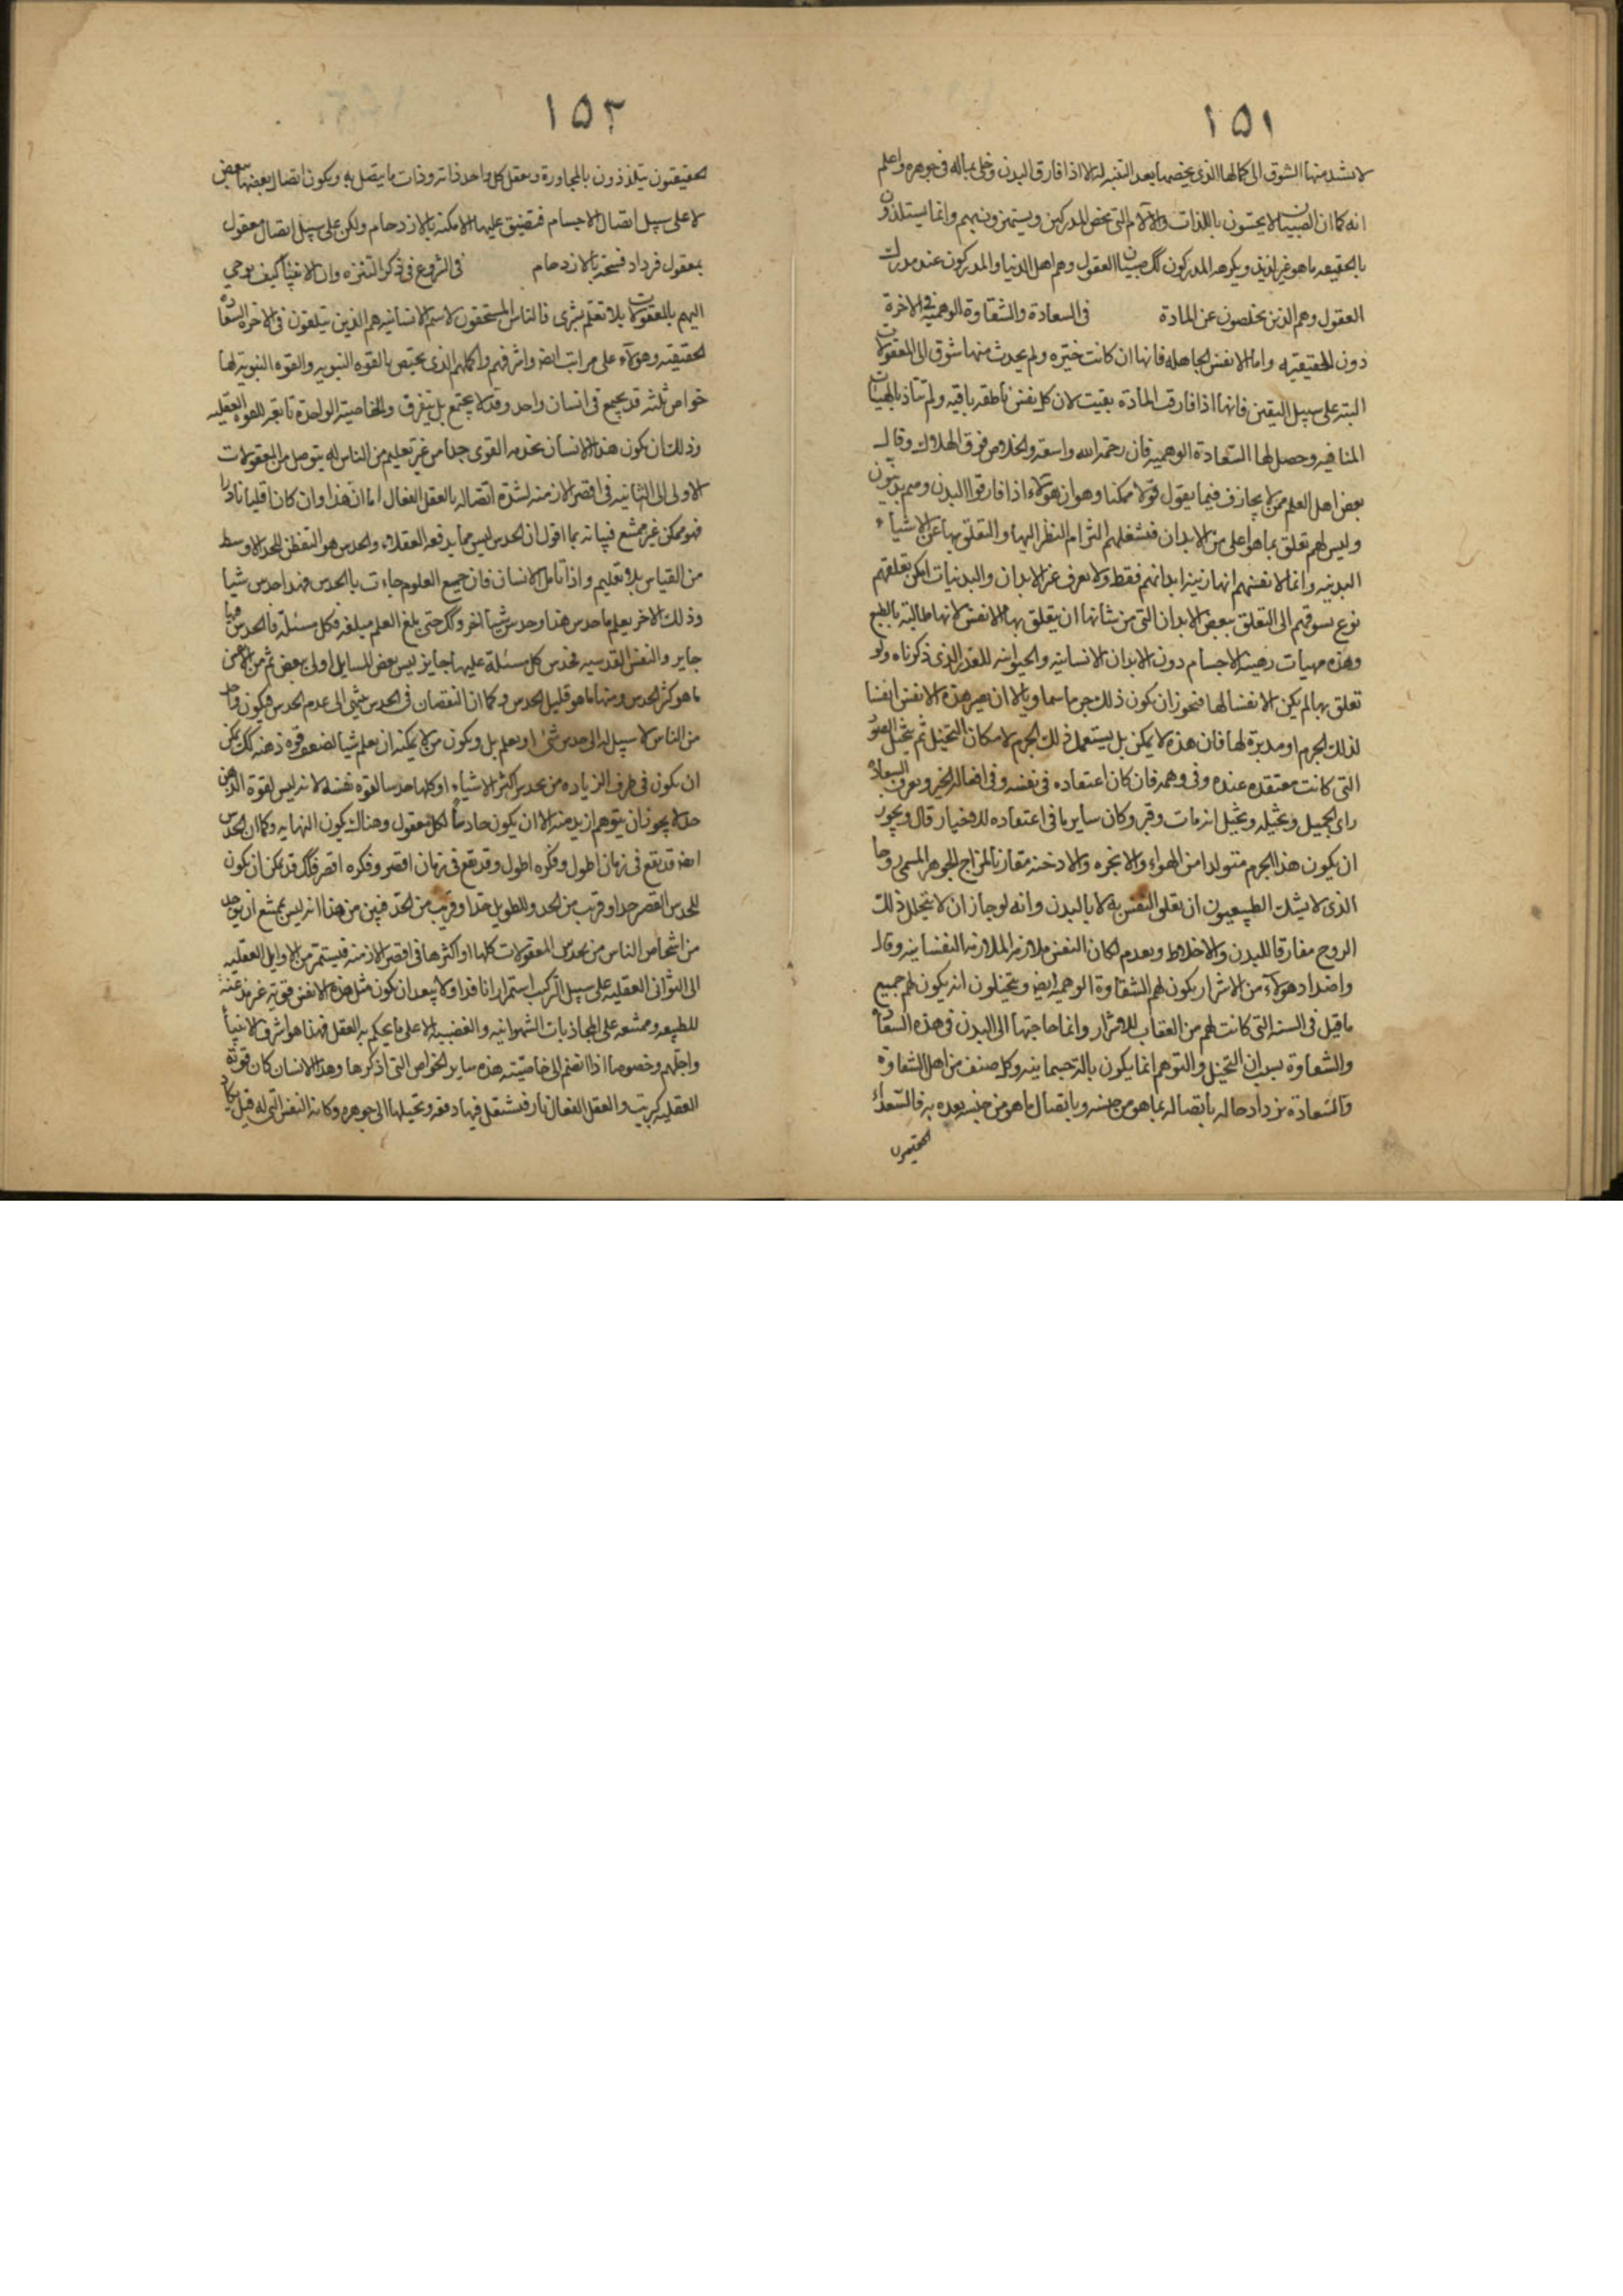 ١٥١
لا يشتد منها الشوق الى كمالها الذى يخصها بعد التنبه له الا اذا فارق البدن وخلى بماله فى جوهره واعلم
انه كما ان الصبيان لا يحسون باللذات والآلام التى تخص المدركين ويستهزون بهم وانما يستلذون
بالحقيقه ما هو غير لذيذ ويكرهه المدركون كك صبيان العقول وهم اهل الدنيا والمدركون عند مدركات
العقول وهم الذين يخلصون عن المادة فى السعادة والشقاوة الوهميه فى الاخرة
دون الحقيقيه واما الانفس الجاهله فانها ان كانت خيّره ولم يحدث منها شوق الى المعقولات
البته على سبيل اليقين فانها اذا فارقت المادّة بقيت لان كل نفس ناطقه باقيه ولم تتاذ بالهيئات
المنافيه وحصل لها السعادة الوهميه فان رحمة الله واسعة والخلاص فوق الهلاك وقال
بعض اهل العلم ممن لا يجازف فيما يقول قولا ممكنا وهو ان هؤلاء اذا فارقوا البدن وهم بدنيون
وليس لهم تعلق بما هو اعلى من الابدان فيشغلهم التزام النظر اليها والتعلق بها عن الاشياء
البدنيه وانما لانفسهم انها زينة ابدانهم فقط ولا تعرف غير الابدان والبدنيات امكن تعلقهم
نوع تشوقهم الى التعلق ببعض الابدان التى من شانها ان يتعلق بها الانفس لانها طالبة بالطبع
وهذه مهيات هيئة الاجسام دون الابدان الانسانية والحيوانيه للقدر الذى ذكرناه ولو
تعلق بها لم يكن الا نفسا لها فيجوز ان يكون ذلك جرما سماويا لا ان تصير هذه الانفس انفسا
لذلك الجرم او مدبرة لها فان هذه لا يمكن بل يستعمل ذلك الجرم لامكان التخيل ثم يتخيل الصور
التى كانت معتقده عنده وفى وهمه فان كان اعتقاده فى نفسه وفى افعاله الخير وتعرف السعادة
راى الجميل وتخيله وتخيل انه مات وقبر وكان ساير ما فى اعتقاده للاخيار قال ويجوز
ان يكون هذا الجرم متولدا من الهواء والابخره والادخنه مقارنا لمزاج الجوهر المسمى روحا
الذى لا يشك الطبيعيون ان تعلق النفس به لا بالبدن وانه لو جاز ان لا يتحلل ذلك
الروح مفارقا للبدن والاخلاط ويعدم لكان النفس ملازمه الملازمة النفسانيه وقال
واضداد هؤلآء من الاشرار يكون لهم الشقاوة الوهميه ايض ويتخيلون انه يكون لهم جميع
ما قيل فى السنه التى كانت لهم من العقاب للاشرار وانما حاجتها الى البدن فى هذه السعادة
والشقاوة بسبب ان التخيل والتوهم انما يكون بآلة جسمانيه وكل صنف من اهل الشقاوة
والسعادة يزداد حاله باتصاله بما هو من جنسه وباتصال ما هو من جنسه بعده به فالسعداء
الحقيقيون
١٥٢
الحقيقيون يتلذذون بالمجاورة ويعقل كل واحد ذاته وذات ما يتصل به ويكون اتصال بعضها ببعض
لا على سبيل اتصال الاجسام فتضيق عليها الامكنه بالازدحام ولكن على سبيل اتصال معقول
بمعقول فيزداد فسحة بالازدحام فى الشروع فى ذكر النبوة وان الانبياء كيف يوحى
اليهم بالمعقولات بلا تعلم بشرى فالناس المستحقون لاسم الانسانيه هم الذين يبلغون فى الاخرة السعادة
الحقيقيه وهؤلاء على مراتب ايض واشرفهم واكملهم الذى يختص بالقوه النبويه والقوه النبويه لها
خواص ثلثه قد يجتمع فى انسان واحد وقد لا يجتمع بل يتفرق والخاصية الواحدة تابعة للقوه العقليه
وذلك ان يكون هذا الانسان بحدسه القوى جدا من غير تعليم من الناس له يتوصل من المعقولات
الاولى الى الثانيه فى اقصر الازمنه لشدة اتصاله بالعقل الفعال اما ان هذا وان كان اقليا نادرا
فهو ممكن غير ممتنع فبيانه بما اقول ان الحدس ليس مما يدفعه العقلاء والحدس هو التفطن للحد الاوسط
من القياس بلا تعليم واذا تامل الانسان فان جميع العلوم جاءت بالحدس فهذا حدس شيا
وذلك الاخر يعلم ما حدس هذا وحدس شيا اخر وكك حتى بلغ العلم مبلغه فكل مسئلة فالحدس فيها
جايز والنفس القدسيه تحدس كل مسئلة عليها جايز ليس بعض المسايل اولى ببعض ثم من الانفس
ما هو كثير الحدس ومنها ما هو قليل الحدس وكما ان النقصان فى الحدس ينتهى الى عدم الحدس فيكون واحد
من الناس لا سبيل له الى حدس شئ او يعلم بل ويكون من لا يمكنه ان يعلم شيا لضعف قوة ذهنه كك يمكن
ان يكون فى طرف الزياده من يحدس اكثر الاشياء او كلها حدسا لقوه نفسه لانه ليس لقوة الذهن
حد لا يجوز ان يتوهم ازيد منه الا ان يكون حادسا لكل معقول وهناك يكون النهايه وكما ان الحدس
ايضه قد يقع فى زمان اطول وفكره اطول وقد يقع فى زمان اقصر وفكره اقصر فكك قد يمكن ان يكون
للحدس القصير حد او قريب من الحد وللطويل حد او قريب من الحد فبين من هذا انه ليس بممتنع ان يوجد
من اشخاص الناس من يحدس المعقولات كلها او اكثرها فى اقصر الازمنه فيستمر من الاوايل العقليه
الى الثوانى العقليه على سبيل التركيب استمرارا نافذا ولا يبعد ان يكون مثل هذه الانفس قويه غير مذعنة
للطبيعه وممتنعه على المجاذبات الشهوانيه والغضبيه الا على ما يحكم به العقل فهذا هو اشرف الانبياء
واجلهم وخصوصا اذا انضم الى خاصيته هذه ساير الخواص التى اذكرها وهذا الانسان كان قوته
العقليه كبريت والعقل الفعال نار فيشتعل فيها دفعه وتحيلها الى جوهره وكانه النفس التى له قيل يكاد